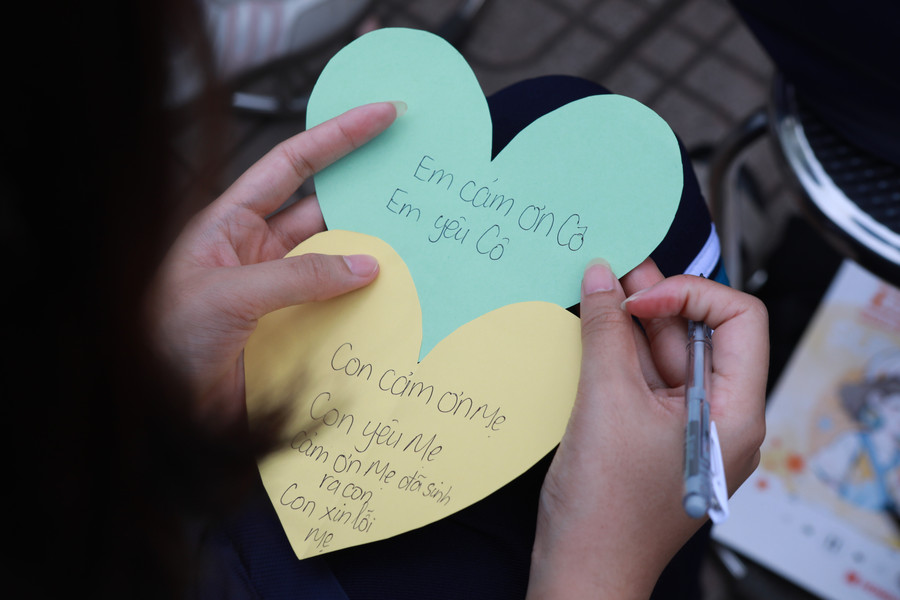 Em cảm ơn Cô
Em yêu Cô
Con cảm ơn Mẹ
Con yêu Mẹ
Cảm ơn Mẹ đã sinh
ra con
Con xin lỗi
mẹ